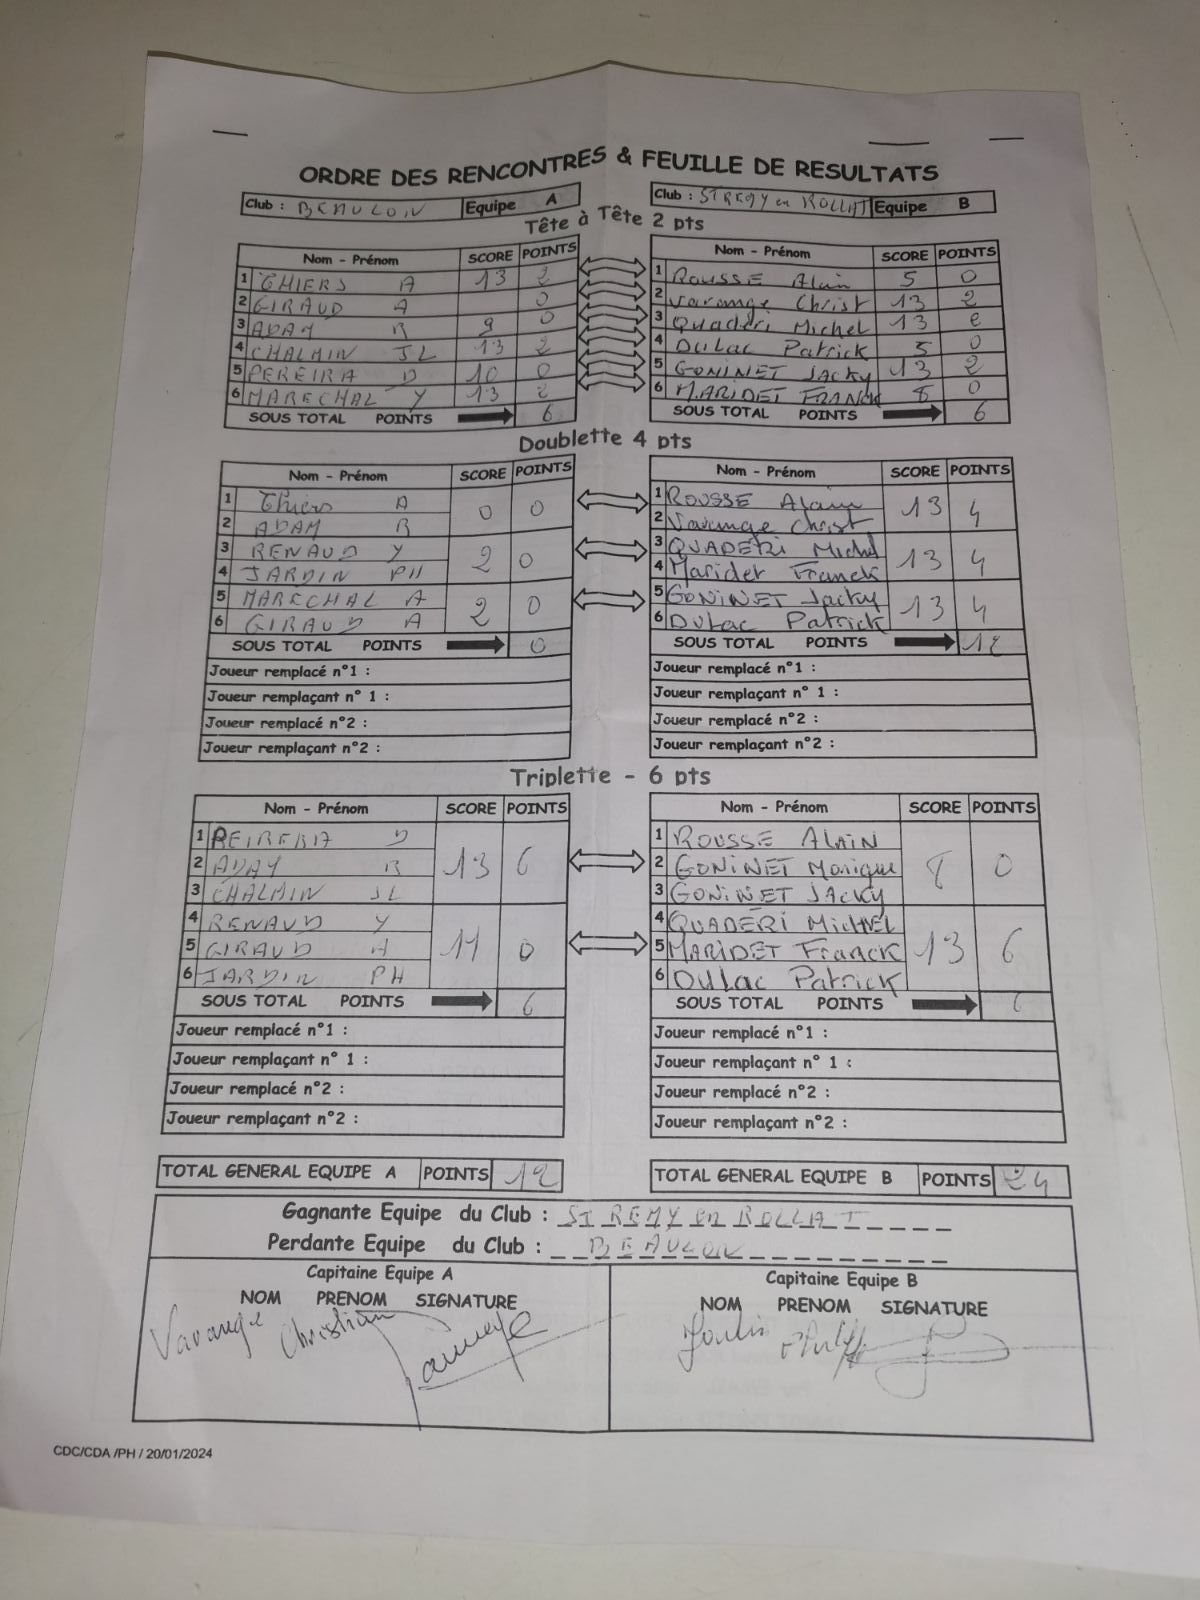 ORDRE DES RENCONTRES & FEUILLE DE RESULTATS
Club : BEAULON Equipe A
Club : ST REMY en ROLLAT Equipe B
Tête à Tête 2 pts
Nom - Prénom SCORE POINTS
1 THIERS A 13 2
2 GIRAUD A 0
3 ADAM R 9 0
4 CHALMIN JL 13 2
5 PEREIRA D 10 0
6 MARECHAL Y 13 2
SOUS TOTAL POINTS 6
Nom - Prénom SCORE POINTS
1 ROUSSE Alain 5 0
2 Varange Christ 13 2
3 Quaderi Michel 13 2
4 DuLac Patrick 5 0
5 GONINET JACKY 13 2
6 MARIDET FRANCK 8 0
SOUS TOTAL POINTS 6
Doublette 4 pts
Nom - Prénom SCORE POINTS
1 Thiers A 0 0
2 ADAM R
3 RENAUD Y 2 0
4 JARDIN PH
5 MARECHAL A 2 0
6 GIRAUD A
SOUS TOTAL POINTS 0
Joueur remplacé n°1 :
Joueur remplaçant n° 1 :
Joueur remplacé n°2 :
Joueur remplaçant n°2 :
Nom - Prénom SCORE POINTS
1 ROUSSE Alain 13 4
2 Varange Christ
3 QUADERI Michel 13 4
4 Maridet Franck
5 GONINET Jacky 13 4
6 DuLac Patrick
SOUS TOTAL POINTS 12
Joueur remplacé n°1 :
Joueur remplaçant n° 1 :
Joueur remplacé n°2 :
Joueur remplaçant n°2 :
Triplette - 6 pts
Nom - Prénom SCORE POINTS
1 PEIRERIA D 13 6
2 ADAM R
3 CHALMIN JL
4 RENAUD Y 11 0
5 GIRAUD A
6 JARDIN PH
SOUS TOTAL POINTS 6
Joueur remplacé n°1 :
Joueur remplaçant n° 1 :
Joueur remplacé n°2 :
Joueur remplaçant n°2 :
Nom - Prénom SCORE POINTS
1 ROUSSE ALAIN 8 0
2 GONINET Monique
3 GONINET JACKY
4 QUADERI MICHEL 13 6
5 MARIDET Franck
6 DULac Patrick
SOUS TOTAL POINTS 6
Joueur remplacé n°1 :
Joueur remplaçant n° 1 :
Joueur remplacé n°2 :
Joueur remplaçant n°2 :
TOTAL GENERAL EQUIPE A POINTS 12
TOTAL GENERAL EQUIPE B POINTS 24
Gagnante Equipe du Club : ST REMY en ROLLAT
Perdante Equipe du Club : BEAULON
Capitaine Equipe A
NOM PRENOM SIGNATURE
Varange Christian
Capitaine Equipe B
NOM PRENOM SIGNATURE
CDC/CDA /PH / 20/01/2024